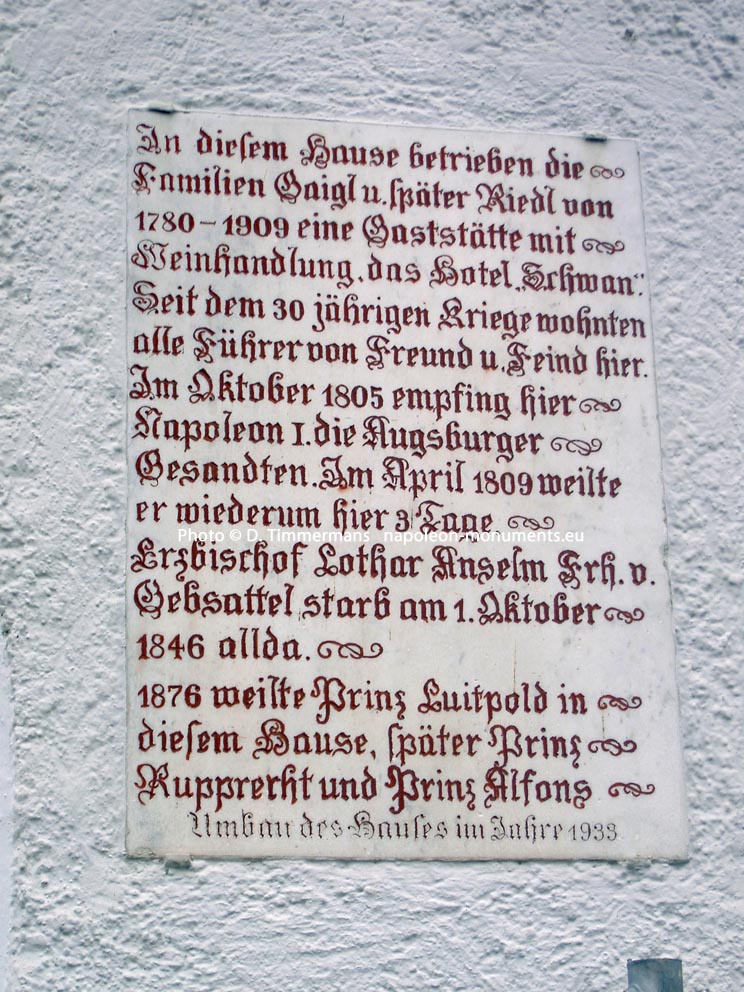 In diesem Hause betrieben die
Familien Gaigl u. später Riedl von
1780 – 1909 eine Gaststätte mit
Weinhandlung, das Hotel „Schwan".
Seit dem 30 jährigen Kriege wohnten
alle Führer von Freund u. Feind hier.
Im Oktober 1805 empfing hier
Napoleon I. die Augsburger
Gesandten. Im April 1809 weilte
er wiederum hier 3 Tage
Photo © D. Timmermans napoleon-monuments.eu
Erzbischof Lothar Anselm Frh. v.
Gebsattel starb am 1. Oktober
1846 allda.
1876 weilte Prinz Luitpold in
diesem Hause, später Prinz
Rupprecht und Prinz Alfons
Umbau des Hauses im Jahre 1933